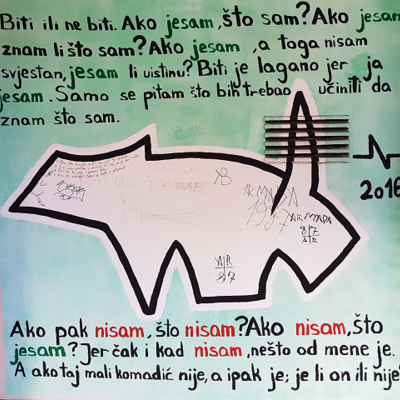 Biti ili ne biti. Ako jesam, što sam? Ako jesam
znam li što sam? Ako jesam , a toga nisam
svjestan, jesam li uistinu? Biti je lagano jer ja
jesam. Samo se pitam što bih trebao učiniti da
znam što sam.
KB
ARMADA
1987
ARMADA
87
AR
AR
87
2016
Ako pak nisam, što nisam? Ako nisam, što
jesam? Jer čak i kad nisam, nešto od mene je.
A ako taj mali komadić nije, a ipak je; je li on ili nije?